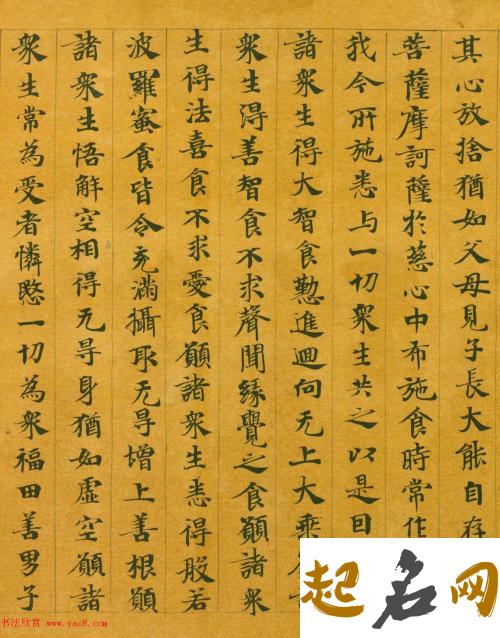 其心放捨猶如父母見子長大能自存
菩薩摩訶薩於慈心中布施食時常作
我今所施悉与一切眾生共之以是囙
諸眾生得大智食懃進迴向无上大乘
眾生得善智食不求聲聞緣覺之食願諸眾
生得法喜食不求愛食願諸眾生悉得般若
波羅蜜食皆令充滿攝取无㝵增上善根願
諸眾生悟解空相得无㝵身猶如虛空願諸
眾生常為受者憐愍一切為眾福田善男子
起名网
书法欣赏 www.yac8.com